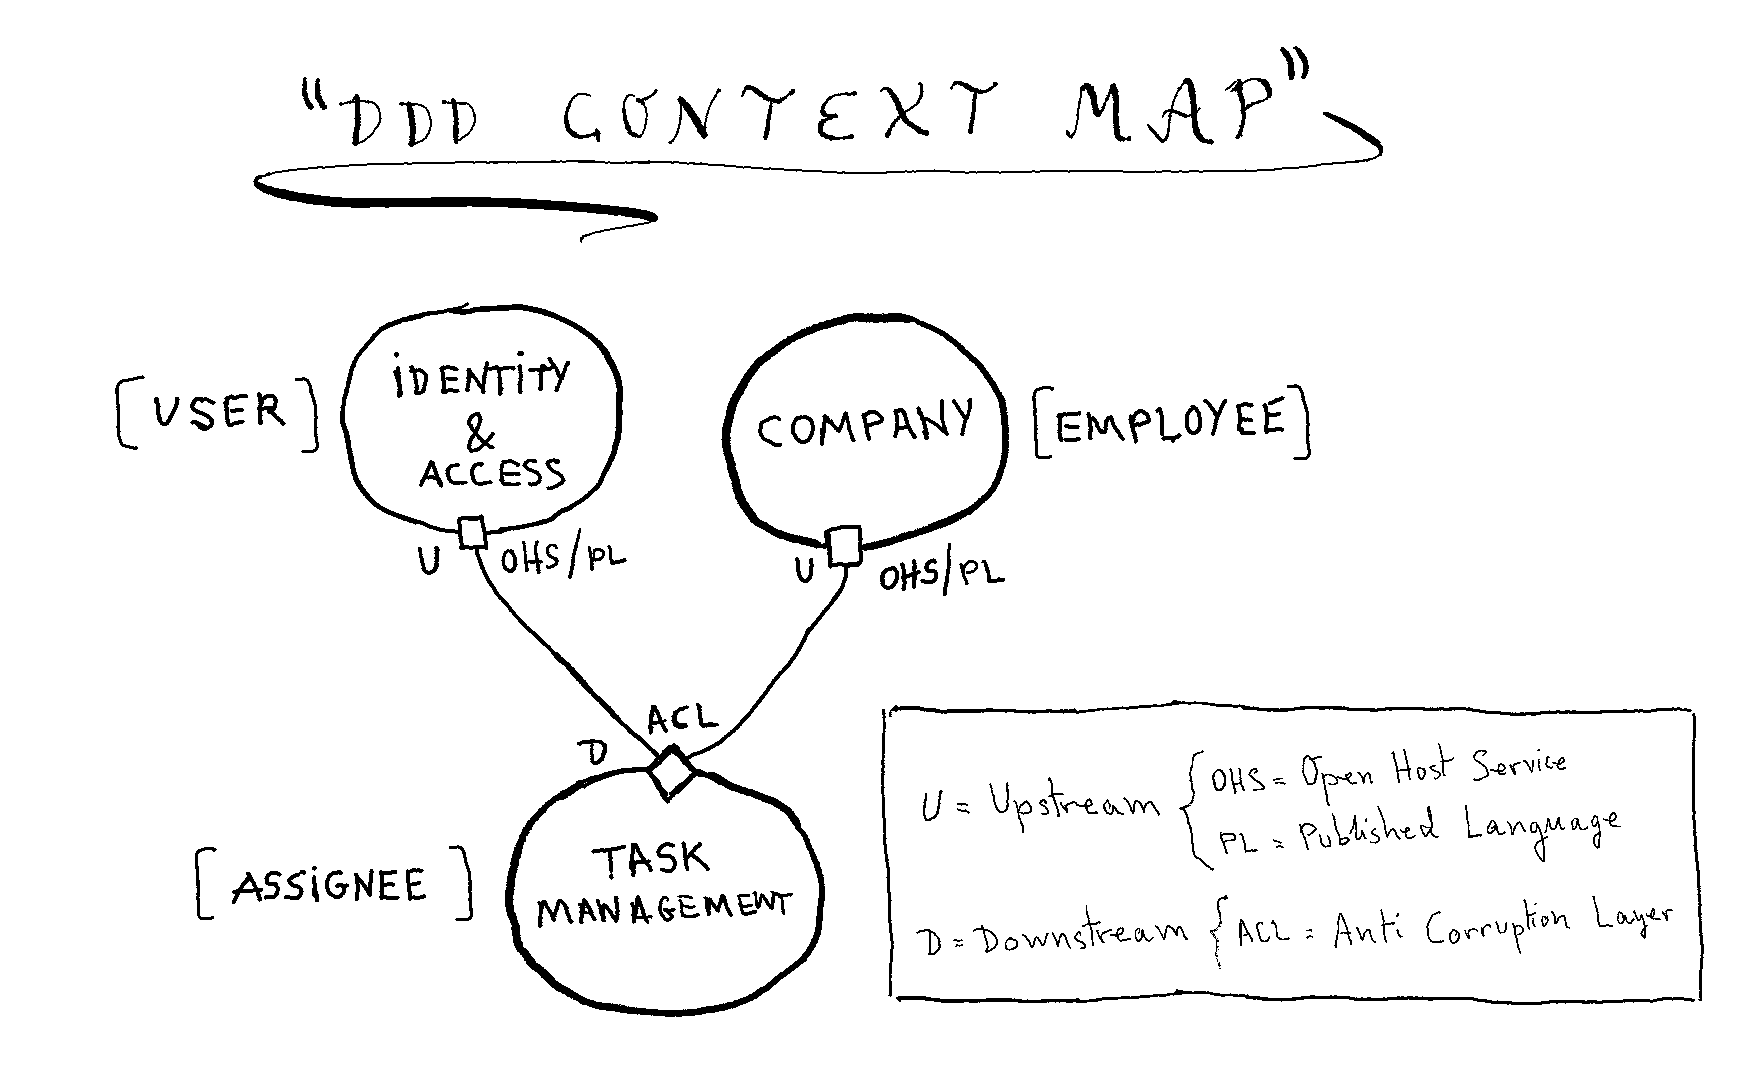 "DDD CONTEXT MAP"
[USER]
iDENTiTY
&
ACCESS
COMPANY
[EMPLOYEE]
U
OHS/PL
U
OHS/PL
ACL
D
[ASSiGNEE]
TASK
MANAGEMENT
U = Upstream { OHS = Open Host Service
PL = Published Language
D = Downstream { ACL = Anti Corruption Layer